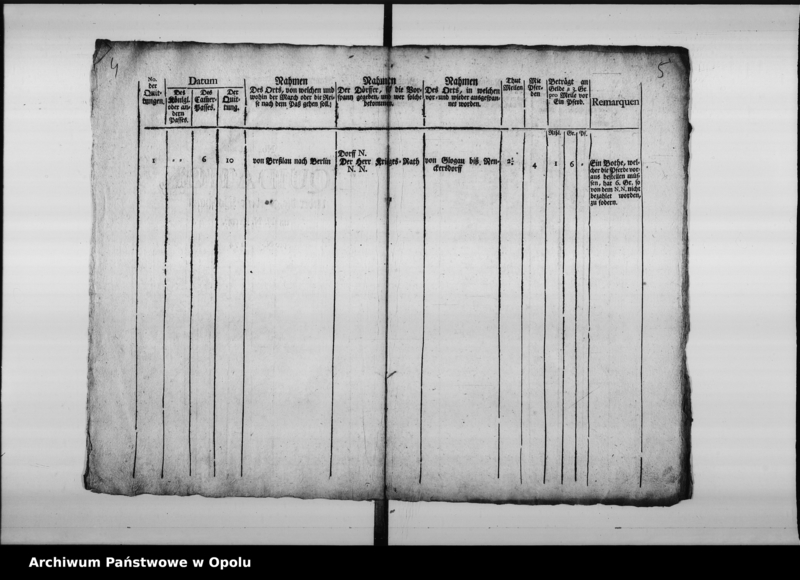 4
5
No.
der
Quit-
tungen.
Datum
Des
Königl.
oder an-
dern
Passes.
Des
Casher-
Passes.
Der
Quit-
tung.
Nahmen
Des Orts, von welchen und
wohin der March oder die Rei-
se nach dem Paß gehen soll.
Nahmen
Der Dörffer, so die Vor-
spann gegeben, von wer solche
bekommen.
Nahmen
Des Orts, in welchen
vor- und wieder ausgespan-
net worden.
Thut
Meilen
Mit
Pfer-
den
Beträgt an
Gelde a 3. Gr
pro Meile vor
Ein Pferd.
Rthl. Gr. Pf.
Remarquen
1 .. 6 10 von Breßlau nach Berlin
Dorff N.
Der Herr Kriegs-Rath
N. N.
von Glogau biß Neu-
ckersdorff
2½ 4 1 6 .
Ein Bothe, wel-
cher die Pferde vor-
aus bestellen müs-
sen, hat 6. Gr. so
von dem N.N. nicht
bezahlet worden,
zu fodern.
Archiwum Państwowe w Opolu